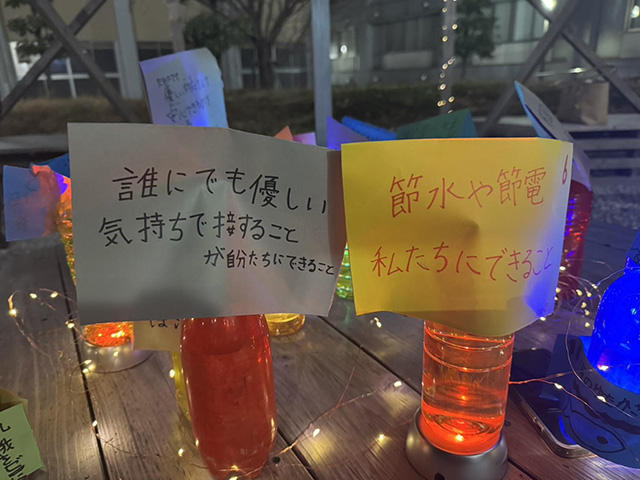 誰にでも優しい
気持ちで接すること
が自分たちにできること
節水や節電
私たちにできること